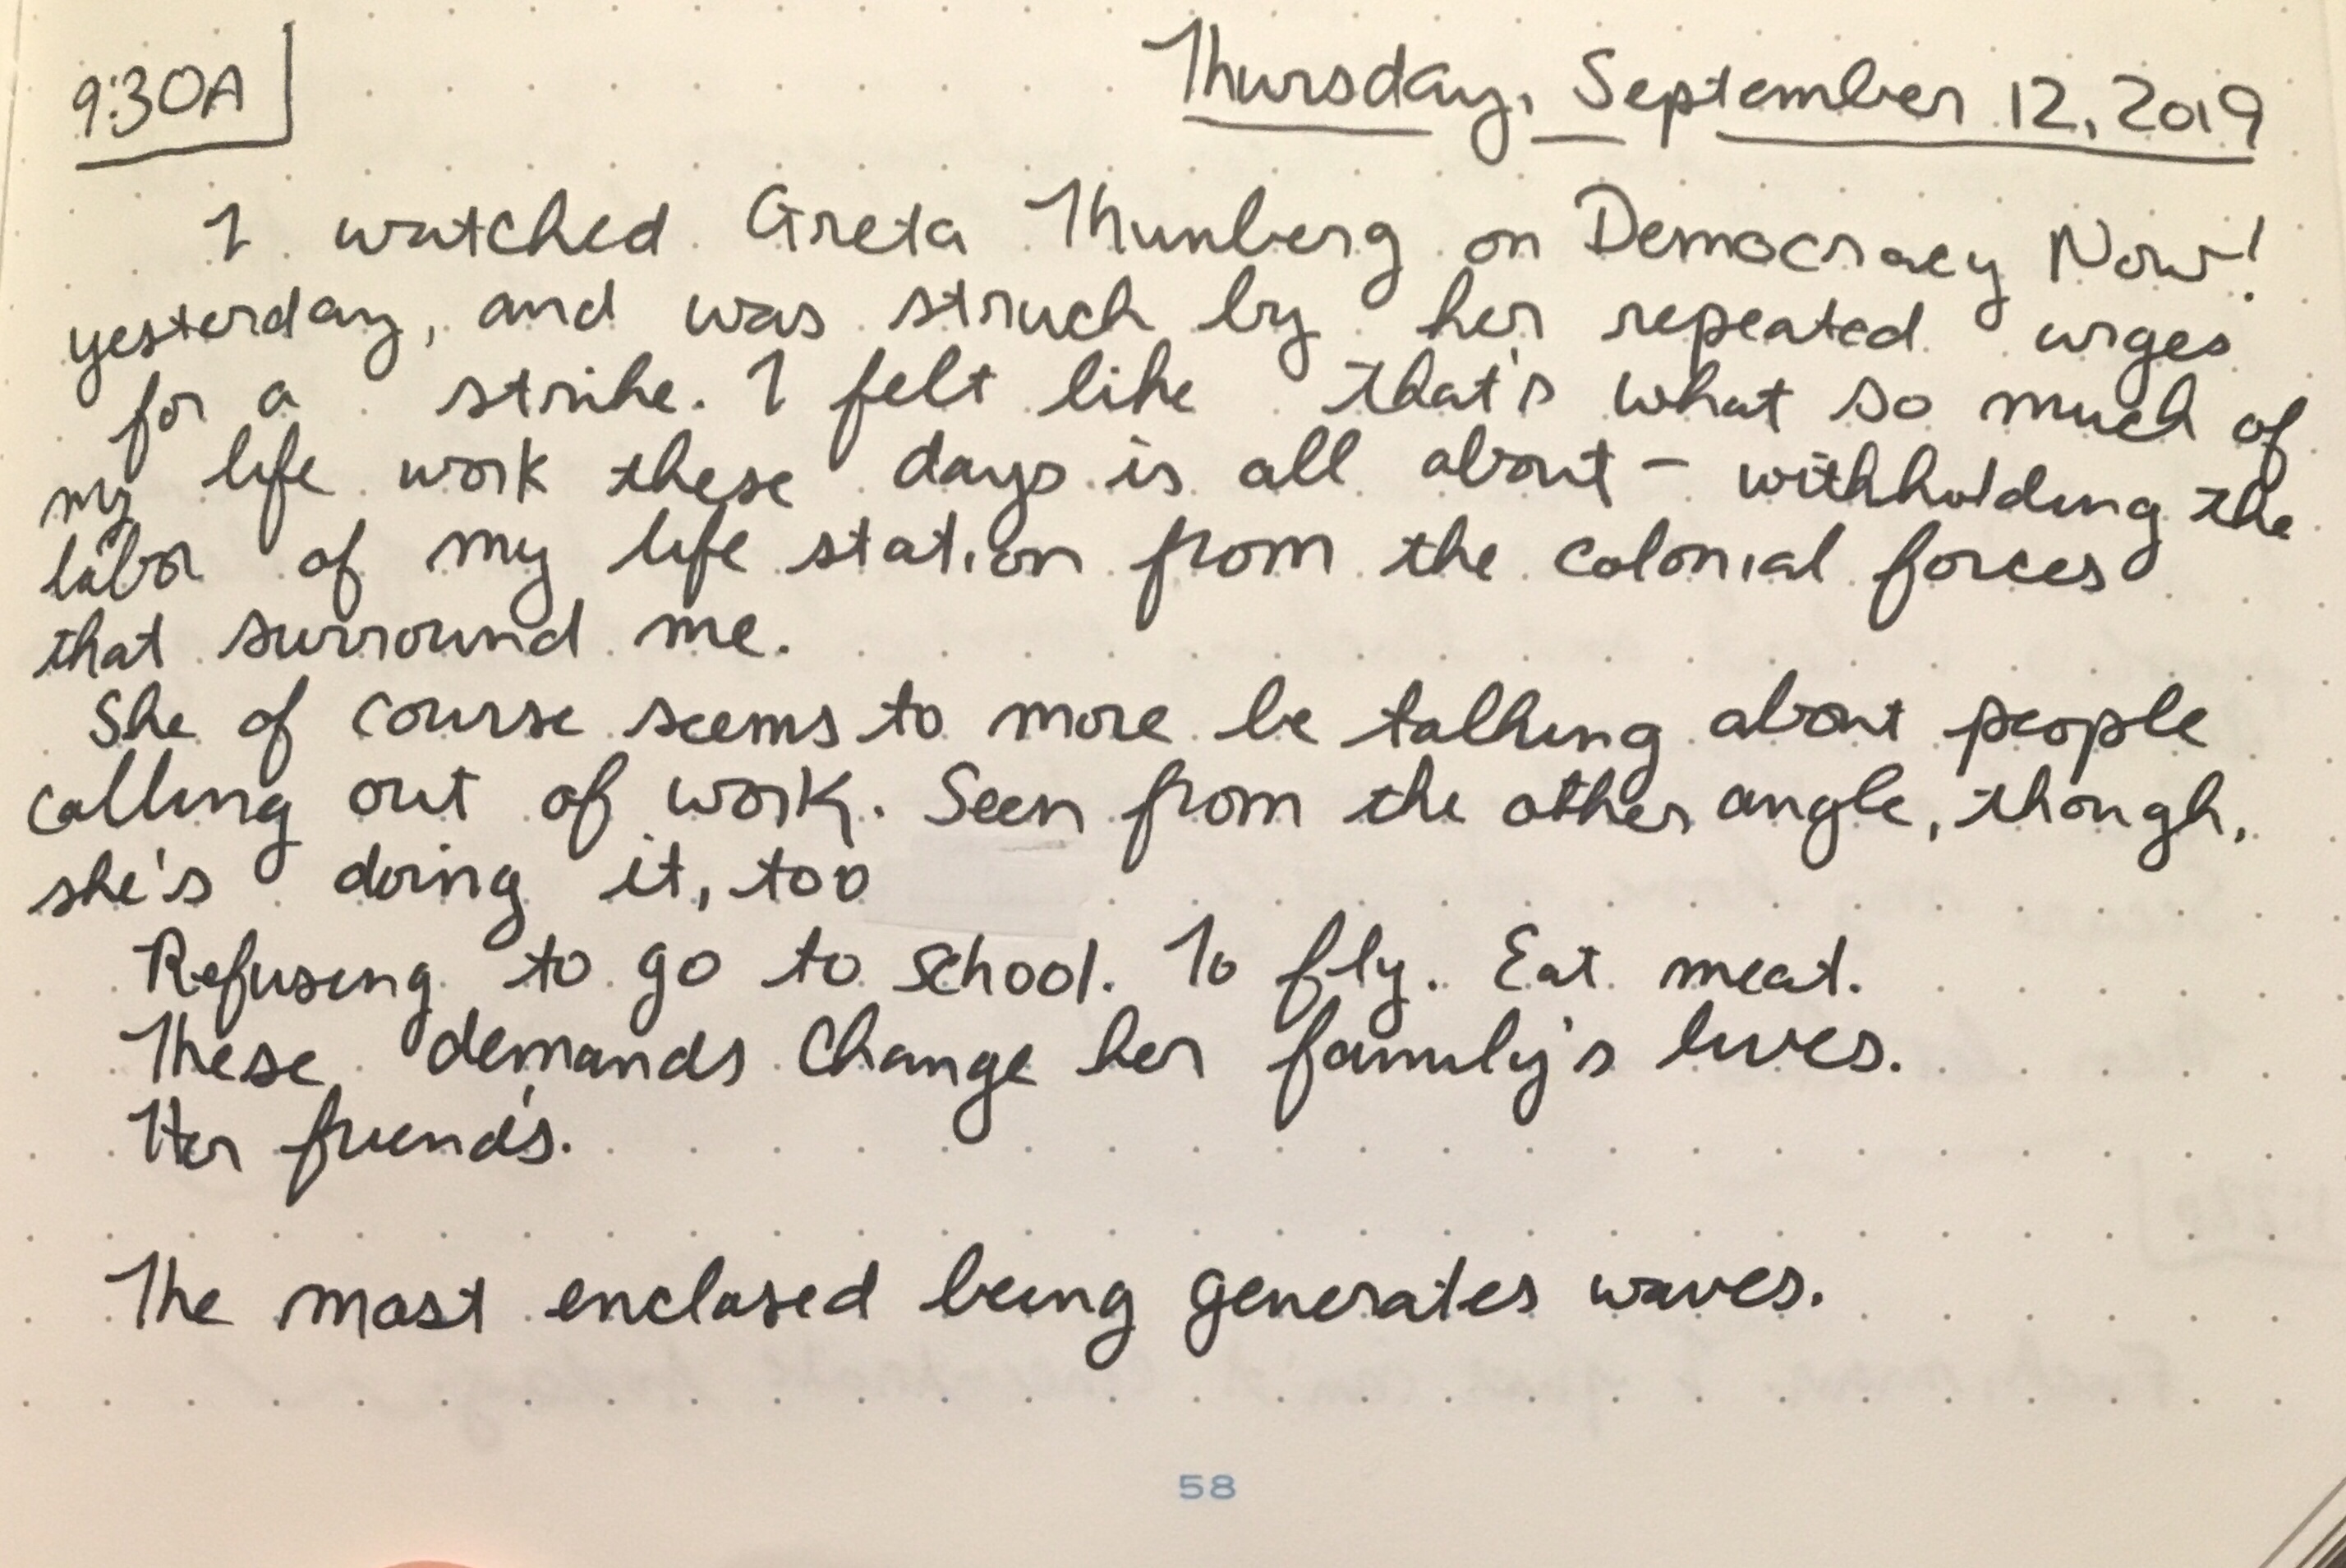 9:30A
Thursday, September 12, 2019
I watched Greta Thunberg on Democracy Now!
yesterday, and was struck by her repeated urges
for a strike. I felt like that's what so much of
my life work these days is all about – withholding the
labor of my life station from the colonial forces
that surround me.
She of course seems to more be talking about people
calling out of work. Seen from the other angle, though,
she's doing it, too
Refusing to go to school. To fly. Eat meat.
These demands change her family's lives.
Her friend's.
The most enclosed being generates waves.
58